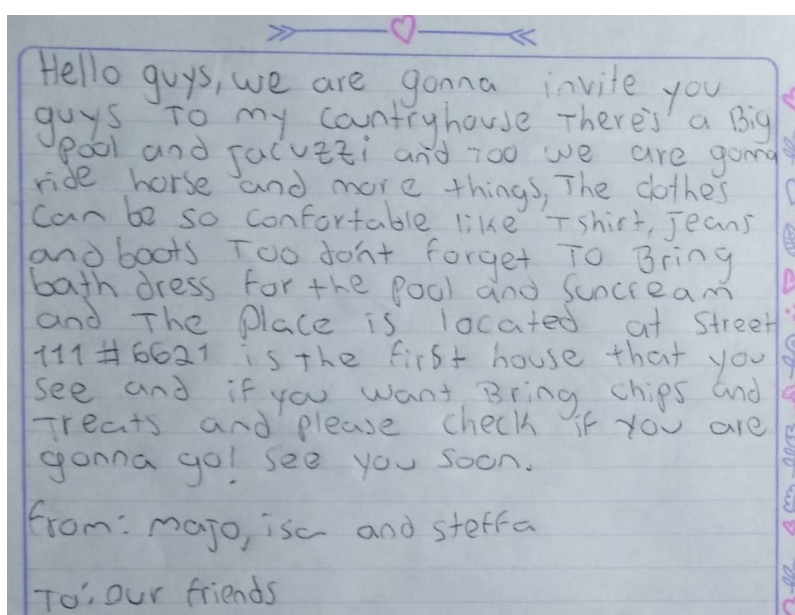 Hello guys, we are gonna invite you
guys To my countryhouse There's a Big
Pool and Jacuzzi and Too we are gonna
ride horse and more things, The clothes
can be so confortable like Tshirt, Jeans
and boots Too don't forget To Bring
bath dress for the pool and suncream
and The Place is located at Street
111 #6621 is the first house that you
see and if you want Bring chips and
Treats and please check if you are
gonna go! see you soon.
from: majo, isa and steffa
To: our friends